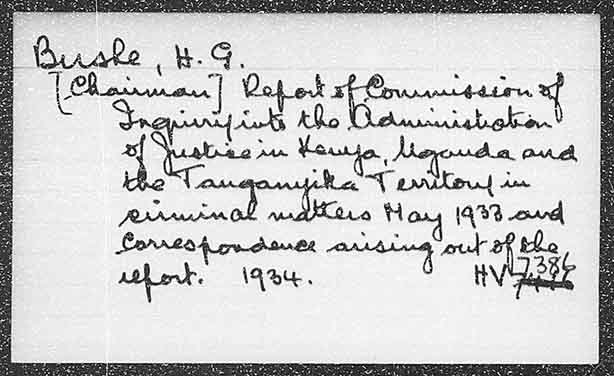 Bushe, H. G.
[Chairman] Report of Commission of
Inquiry into the Administration
of Justice in Kenya, Uganda and
the Tanganyika Territory in
criminal matters May 1933 and
correspondence arising out of the
report. 1934. HV 7386